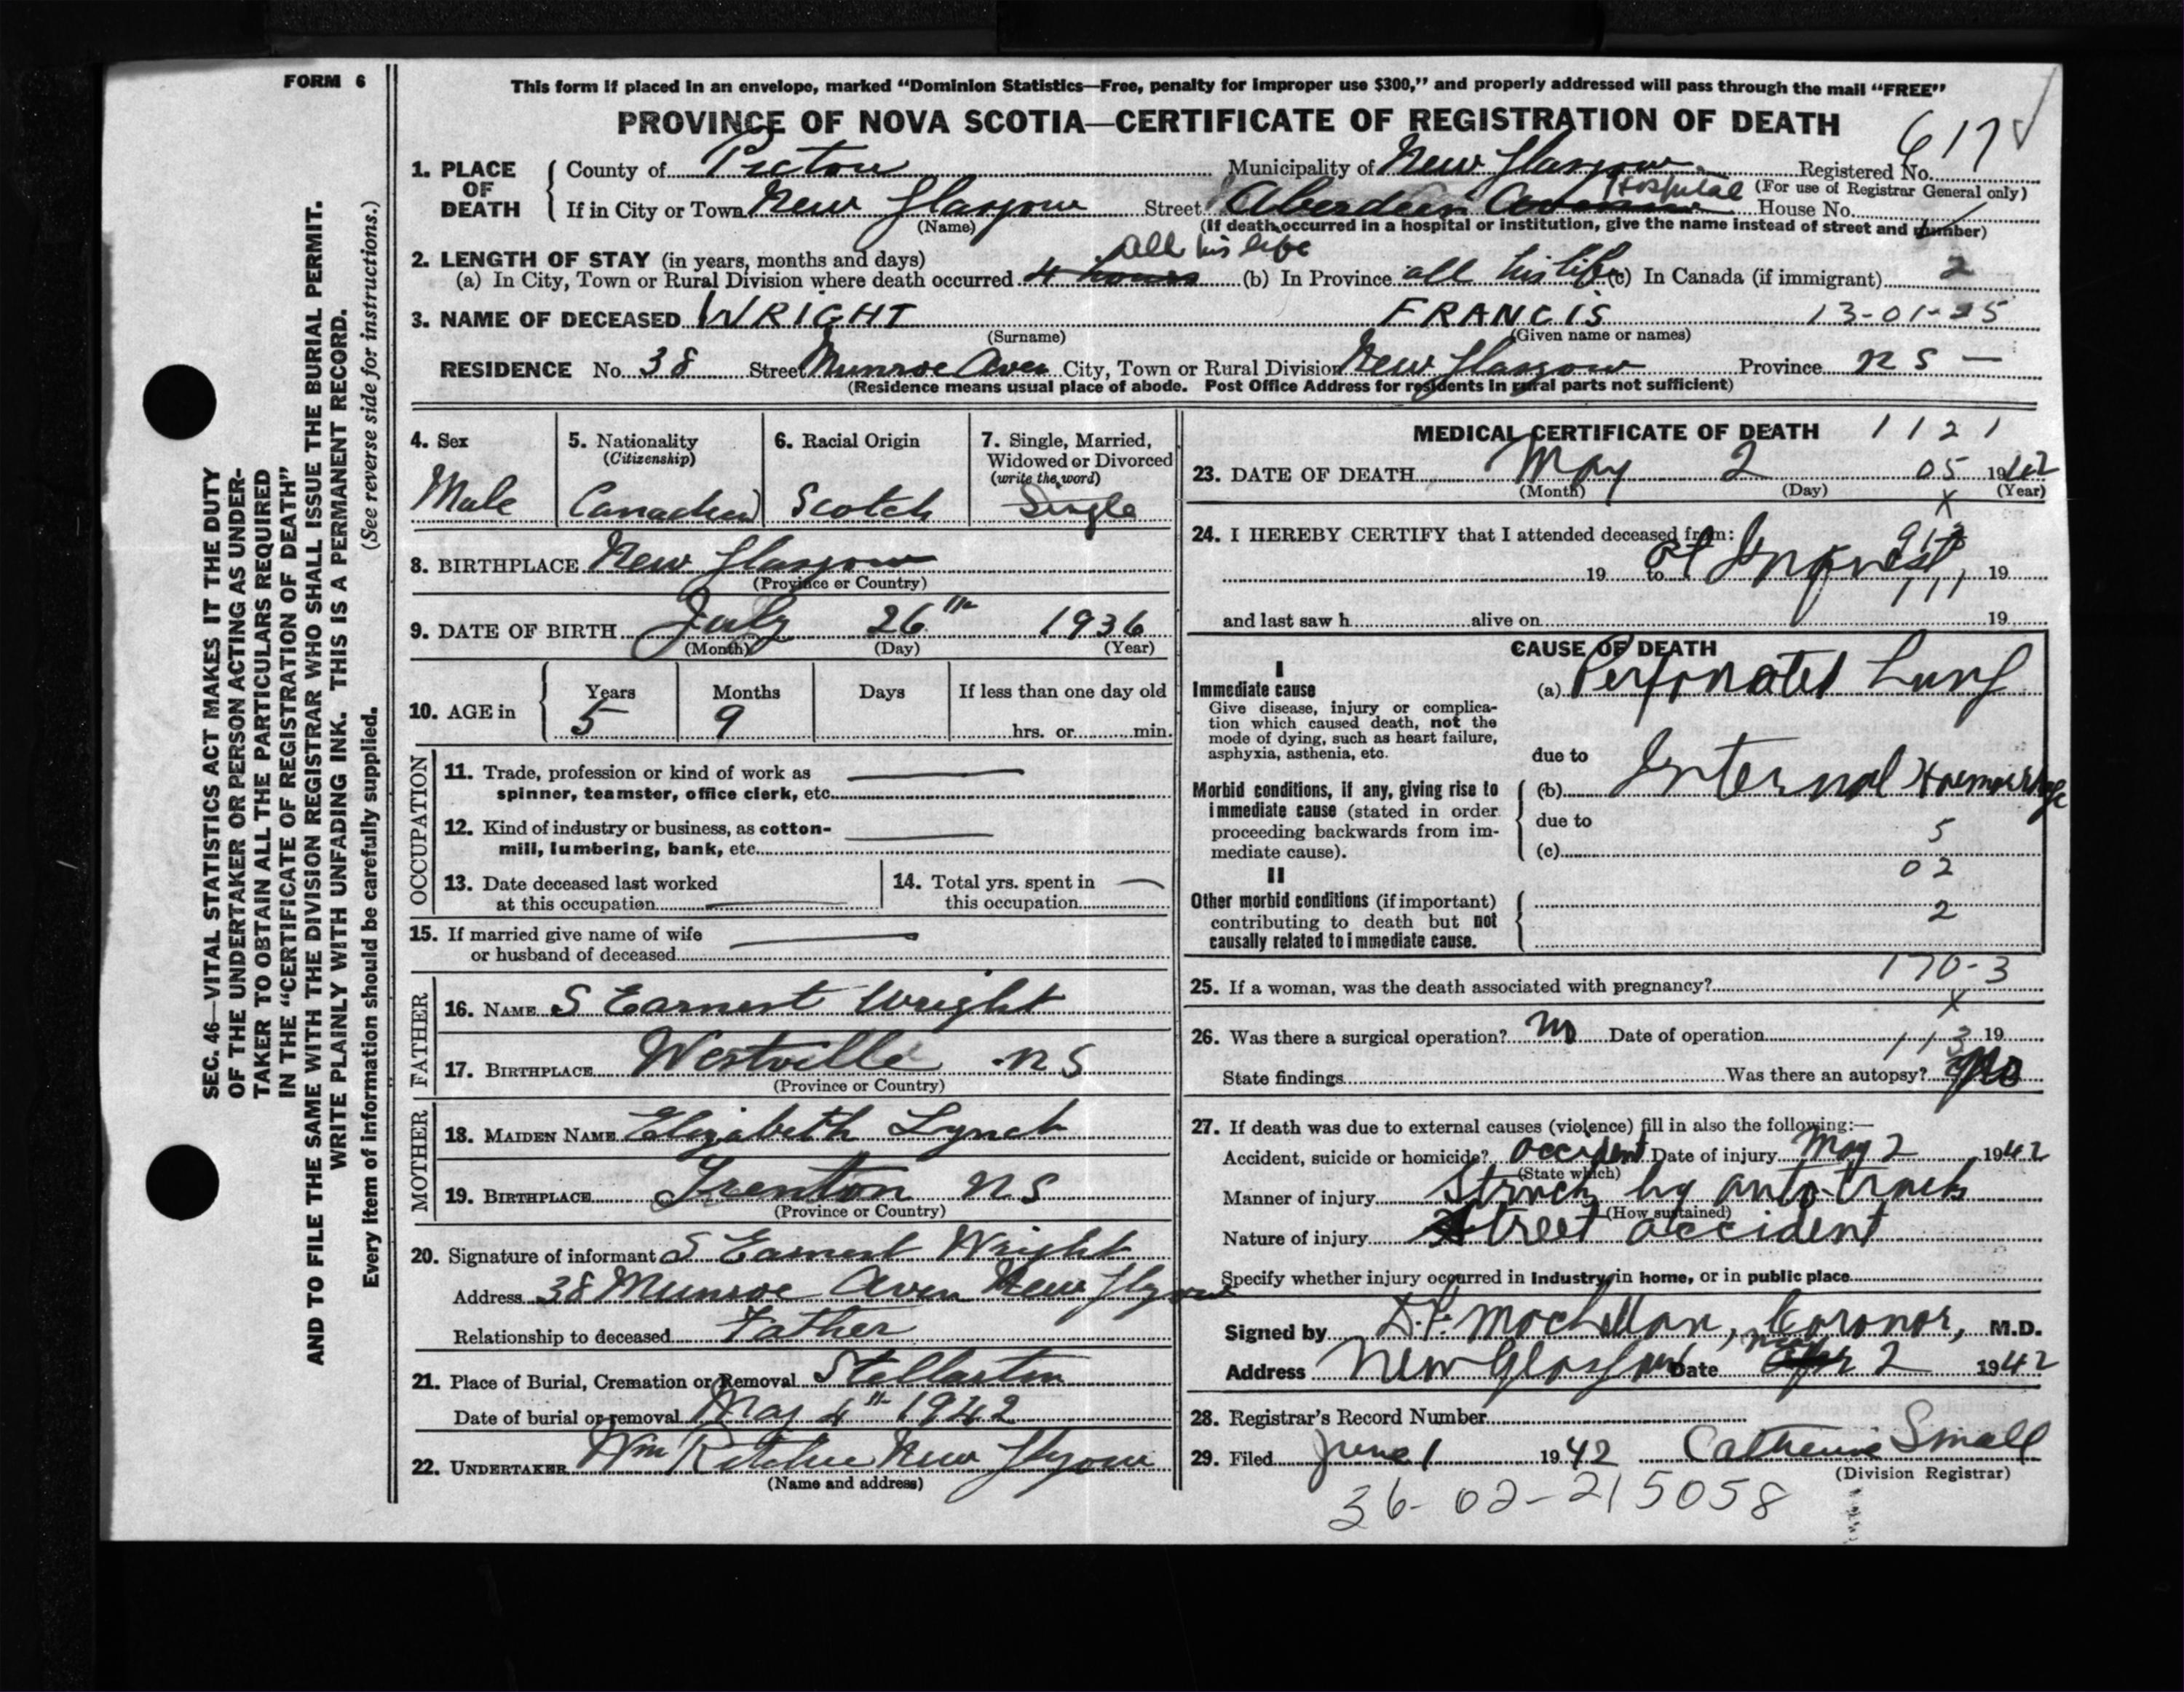 FORM 6
This form if placed in an envelope, marked “Dominion Statistics—Free, penalty for improper use $300,” and properly addressed will pass through the mail “FREE”
PROVINCE OF NOVA SCOTIA—CERTIFICATE OF REGISTRATION OF DEATH
617
1. PLACE OF DEATH
County of Pictou Municipality of New Glasgow Registered No.
(For use of Registrar General only)
If in City or Town New Glasgow Street Aberdeen Hospital House No.
(Name) (If death occurred in a hospital or institution, give the name instead of street and number)
2. LENGTH OF STAY (in years, months and days) All his life
(a) In City, Town or Rural Division where death occurred 4 hours (b) In Province all his life (c) In Canada (if immigrant) 2
3. NAME OF DECEASED WRIGHT FRANCIS 13-01-25
(Surname) (Given name or names)
RESIDENCE No. 38 Street Munroe Aven City, Town or Rural Division New Glasgow Province N S —
(Residence means usual place of abode. Post Office Address for residents in rural parts not sufficient)
4. Sex
Male
5. Nationality
(Citizenship)
Canadian
6. Racial Origin
Scotch
7. Single, Married, Widowed or Divorced
(write the word)
Single
8. BIRTHPLACE New Glasgow
(Province or Country)
9. DATE OF BIRTH July 26th 1936
(Month) (Day) (Year)
10. AGE in Years Months Days If less than one day old
5 9 hrs. or min.
OCCUPATION
11. Trade, profession or kind of work as
spinner, teamster, office clerk, etc.
12. Kind of industry or business, as cotton-
mill, lumbering, bank, etc.
13. Date deceased last worked
at this occupation
14. Total yrs. spent in
this occupation
15. If married give name of wife
or husband of deceased
FATHER
16. NAME S Earnest Wright
17. BIRTHPLACE Westville N S
(Province or Country)
MOTHER
18. MAIDEN NAME Elizabeth Lynch
19. BIRTHPLACE Trenton N S
(Province or Country)
20. Signature of informant S Earnest Wright
Address 38 Munroe Aven New Glasgow
Relationship to deceased Father
21. Place of Burial, Cremation or Removal Stellarton
Date of burial or removal May 4th 1942
22. UNDERTAKER Wm Ritchie New Glasgow
(Name and address)
MEDICAL CERTIFICATE OF DEATH 1121
23. DATE OF DEATH May 2 05 1942
(Month) (Day) (Year)
x
24. I HEREBY CERTIFY that I attended deceased from:
19 to at Inquest, 19
111
and last saw h alive on 19
CAUSE OF DEATH
I
Immediate cause
Give disease, injury or complica-
tion which caused death, not the
mode of dying, such as heart failure,
asphyxia, asthenia, etc.
(a) Perforated Lung
due to
Morbid conditions, if any, giving rise to
immediate cause (stated in order
proceeding backwards from im-
mediate cause).
(b) Internal Haemorrhage
due to
5
(c)
02
II
Other morbid conditions (if important)
contributing to death but not
causally related to immediate cause.
2
170-3
25. If a woman, was the death associated with pregnancy?
x
26. Was there a surgical operation? No Date of operation 113 19
State findings Was there an autopsy? No
27. If death was due to external causes (violence) fill in also the following:—
Accident, suicide or homicide? accident Date of injury May 2 1942
(State which)
Manner of injury Struck by auto-truck
(How sustained)
Nature of injury Street accident
Specify whether injury occurred in Industry, in home, or in public place
Signed by Coronor, M.D.
Address New Glasgow Date May 2 1942
28. Registrar's Record Number
29. Filed June 1 1942 Catherine Small
(Division Registrar)
36-02-215058
SEC. 46—VITAL STATISTICS ACT MAKES IT THE DUTY
OF THE UNDERTAKER OR PERSON ACTING AS UNDER-
TAKER TO OBTAIN ALL THE PARTICULARS REQUIRED
IN THE “CERTIFICATE OF REGISTRATION OF DEATH”
AND TO FILE THE SAME WITH THE DIVISION REGISTRAR WHO SHALL ISSUE THE BURIAL PERMIT.
WRITE PLAINLY WITH UNFADING INK. THIS IS A PERMANENT RECORD.
Every item of information should be carefully supplied. (See reverse side for instructions.)